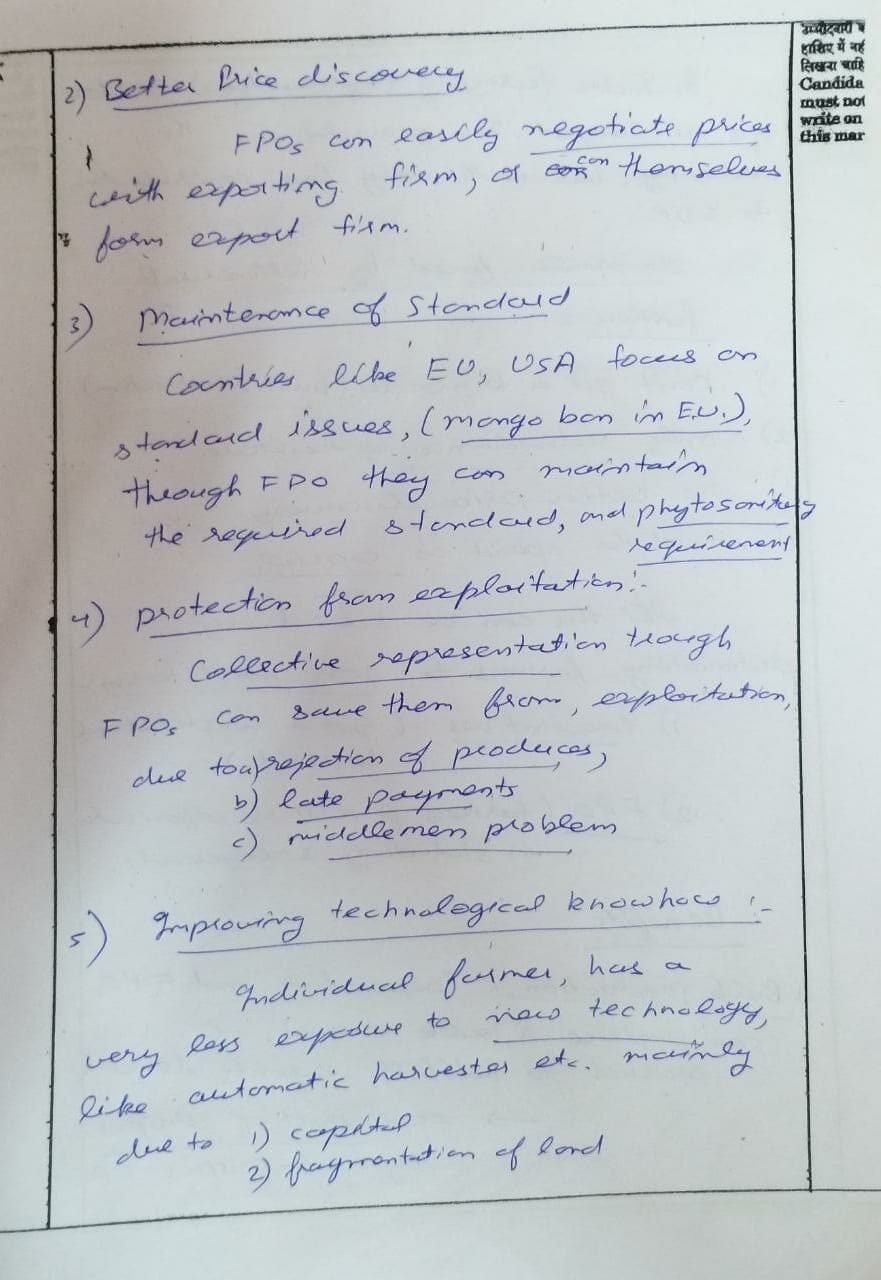 उम्मीदवारी
हाशिए में नहीं
लिखना चाहि
Candida
must not
write on
this mar
2) Better Price discovery
FPOs can easily negotiate prices
with exporting firm, or can themselves
form export firm.
3) Maintenance of Standard
Countries like EU, USA focus on
standard issues, (mango ban in E.U.),
through FPO they can maintain
the required standard, and phytosanitary
requirement
4) Protection from exploitation:-
Collective representation trough
FPOs can save them from, exploitation,
due to a) rejection of produces,
b) late payments
c) middlemen problem
5) Improving technological knowhow :-
Individual farmer, has a
very less exposure to new technology,
like automatic harvester etc. mainly
due to 1) capital
2) fragmentation of land